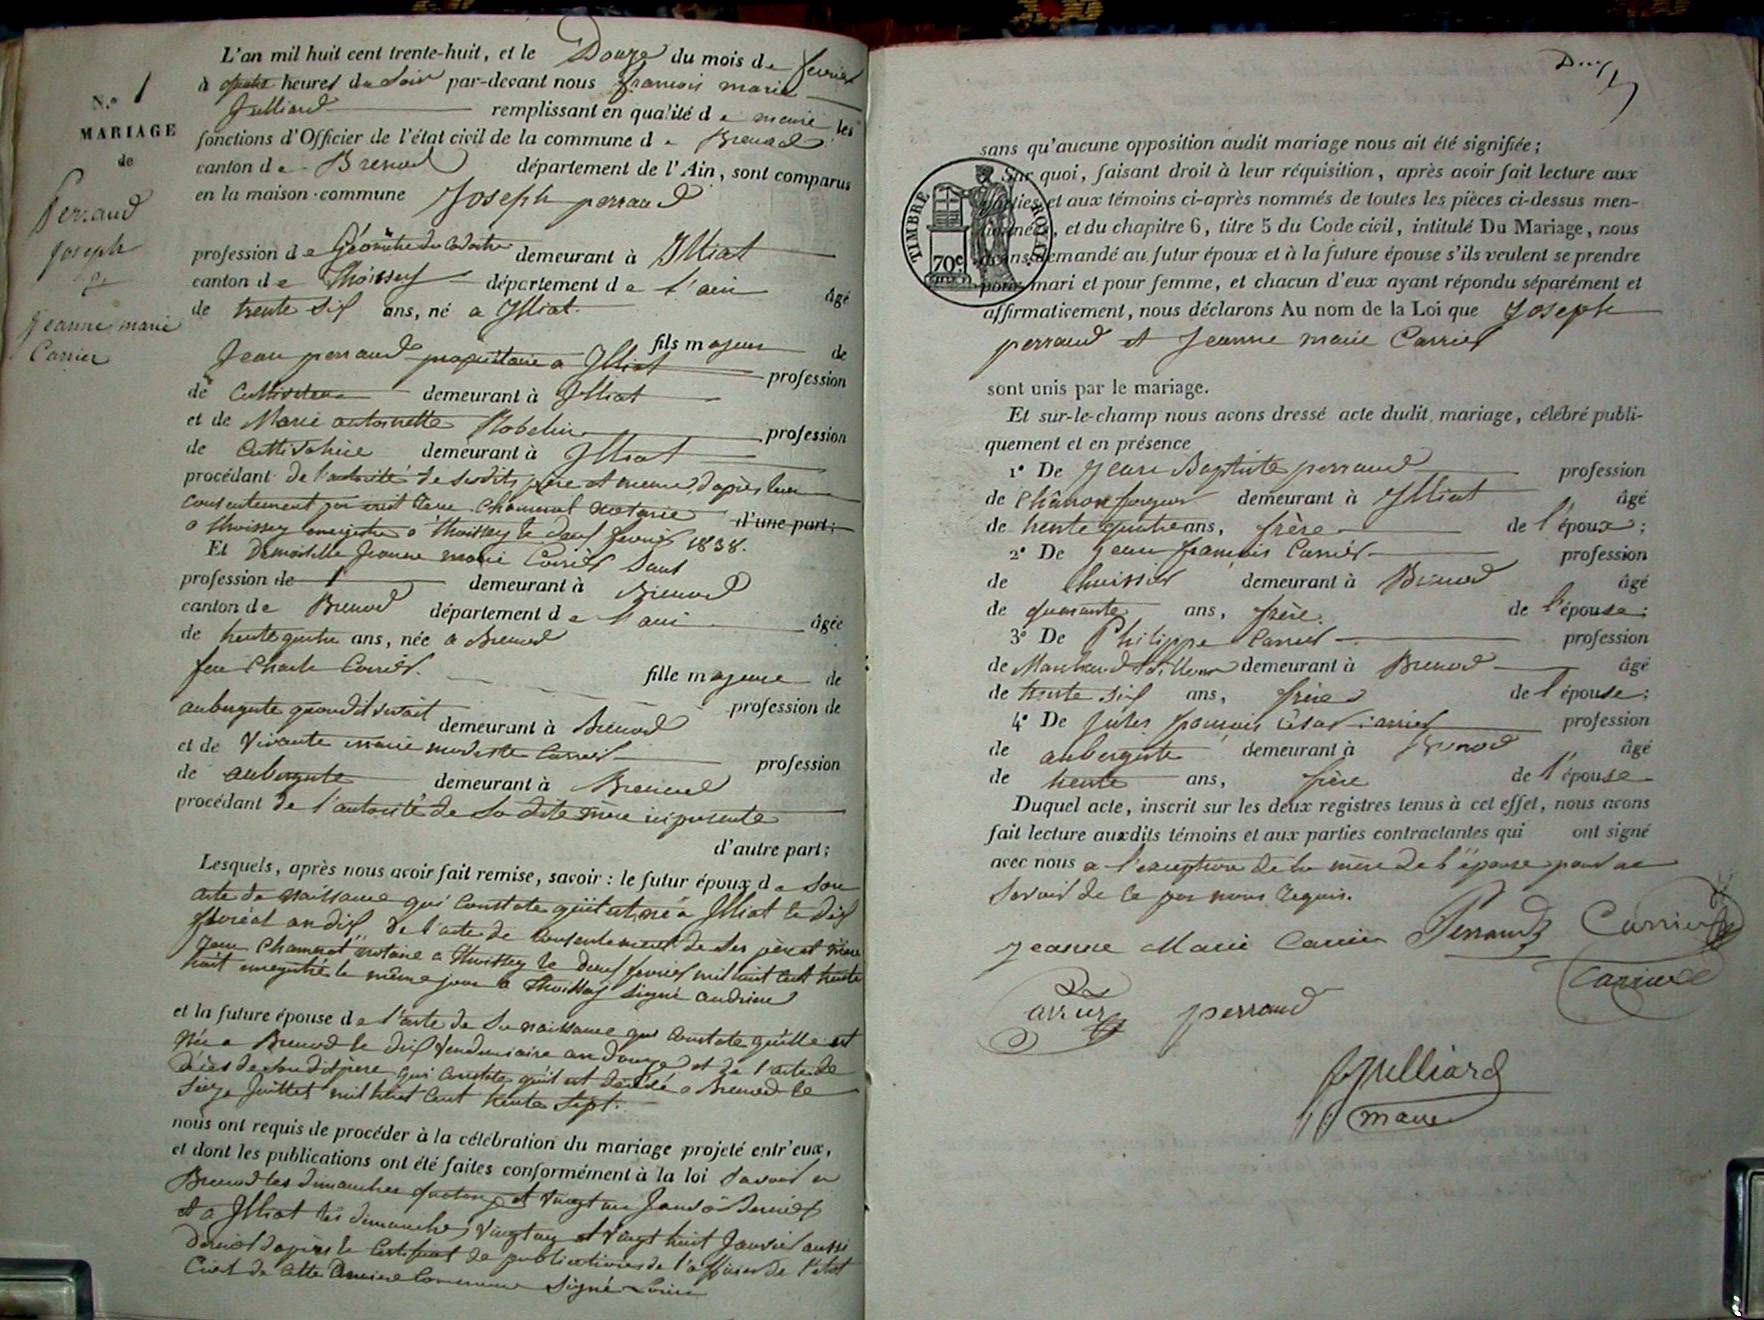 N.º 1
MARIAGE
de
Perraud
Joseph
&
Jeanne marie
Carrier
L'an mil huit cent trente-huit, et le Douze du mois de fevrier
à quatre heures du Soir par-devant nous françois marie
Julliard remplissant en qualité de maire les
fonctions d'Officier de l'état civil de la commune de Brenod
canton de Brenod département de l'Ain, sont comparus
en la maison commune Joseph perraud
profession de Géomètre du cadastre demeurant à Illiat
canton de Thoissey département de l'ain âgé
de trente six ans, né a Illiat.
fils majeur de
Jean perraud propriétaire a Illiat profession
de Cultivateur demeurant à Illiat
et de Marie antoinette Robelin profession
de Cultivatrice demeurant à Illiat
procédant de l'autorité de Sesdits père et mere d'après leur
consentement par Chamerat notaire d'une part;
a Thoissey enregistré a Thoissey le Deux fevrier 1838.
Et Demoiselle Jeanne marie Carrier Sans
profession de demeurant à Brenod
canton de Brenod département de l'ain âgée
de trente quatre ans, née a Brenod
fille majeure de
feu Charle Carrier.
profession de
aubergiste quand il vivait demeurant à Brenod
et de Vivante marie modeste Carrier profession
de aubergiste demeurant à Brenod
procédant de l'autorité de Sa dite mère ici présente
d'autre part;
Lesquels, après nous avoir fait remise, savoir: le futur époux de Son
acte de naissance qui Constate qu'il est né a Illiat le Dix
floréal an dix de l'acte de Consentement de Ses père et mère
Chamerat notaire a Thoissey le deux fevrier mil huit cent trente
huit enregistré le même jour a Thoissey Signé
et la future épouse de l'acte de Sa naissance qui Constate qu'elle est
née a Brenod le dix Vendemiaire an douze et de l'acte de
Décès de Son dit père qui Constate qu'il est décédé a Brenod le
Seize Juillet mil huit cent trente Sept.
nous ont requis de procéder à la célébration du mariage projeté entr'eux,
et dont les publications ont été faites conformément à la loi Savoir a
Brenod les dimanches quatorze et Vingt un Janvier Dernier
et a Illiat les dimanches Vingt un et Vingt huit Janvier aussi
Dernier d'après le Certificat de publications de l'officier de l'état
Civil de Cette Derniere Commune Signé
Deux
sans qu'aucune opposition audit mariage nous ait été signifiée;
Sur quoi, faisant droit à leur réquisition, après avoir fait lecture aux
parties et aux témoins ci-après nommés de toutes les pièces ci-dessus men-
tionnées, et du chapitre 6, titre 5 du Code civil, intitulé Du Mariage, nous
avons demandé au futur époux et à la future épouse s'ils veulent se prendre
pour mari et pour femme, et chacun d'eux ayant répondu séparément et
affirmativement, nous déclarons Au nom de la Loi que Joseph
perraud et Jeanne marie Carrier
TIMBRE ROYAL
70c
sont unis par le mariage.
Et sur-le-champ nous avons dressé acte dudit mariage, célébré publi-
quement et en présence
1º De Jean Baptiste perraud profession
de demeurant à Illiat âgé
de trente quatre ans, frère de l'époux;
2º De Jean françois Carrier profession
de huissier demeurant à Brenod âgé
de quarante ans, frère. de l'épouse;
3º De Philippe Carrier profession
de Marchand demeurant à Brenod âgé
de trente six ans, frère de l'épouse;
4º De Jules françois César Carrier profession
de aubergiste demeurant à Brenod âgé
de trente ans, frère de l'épouse
Duquel acte, inscrit sur les deux registres tenus à cet effet, nous avons
fait lecture auxdits témoins et aux parties contractantes qui ont signé
avec nous a l'exception de la mère de l'épouse pour ne
Savoir de ce par nous requis.
jeanne Marie Carrier Perraud Carrier
Carrier
perraud
Julliard
maire